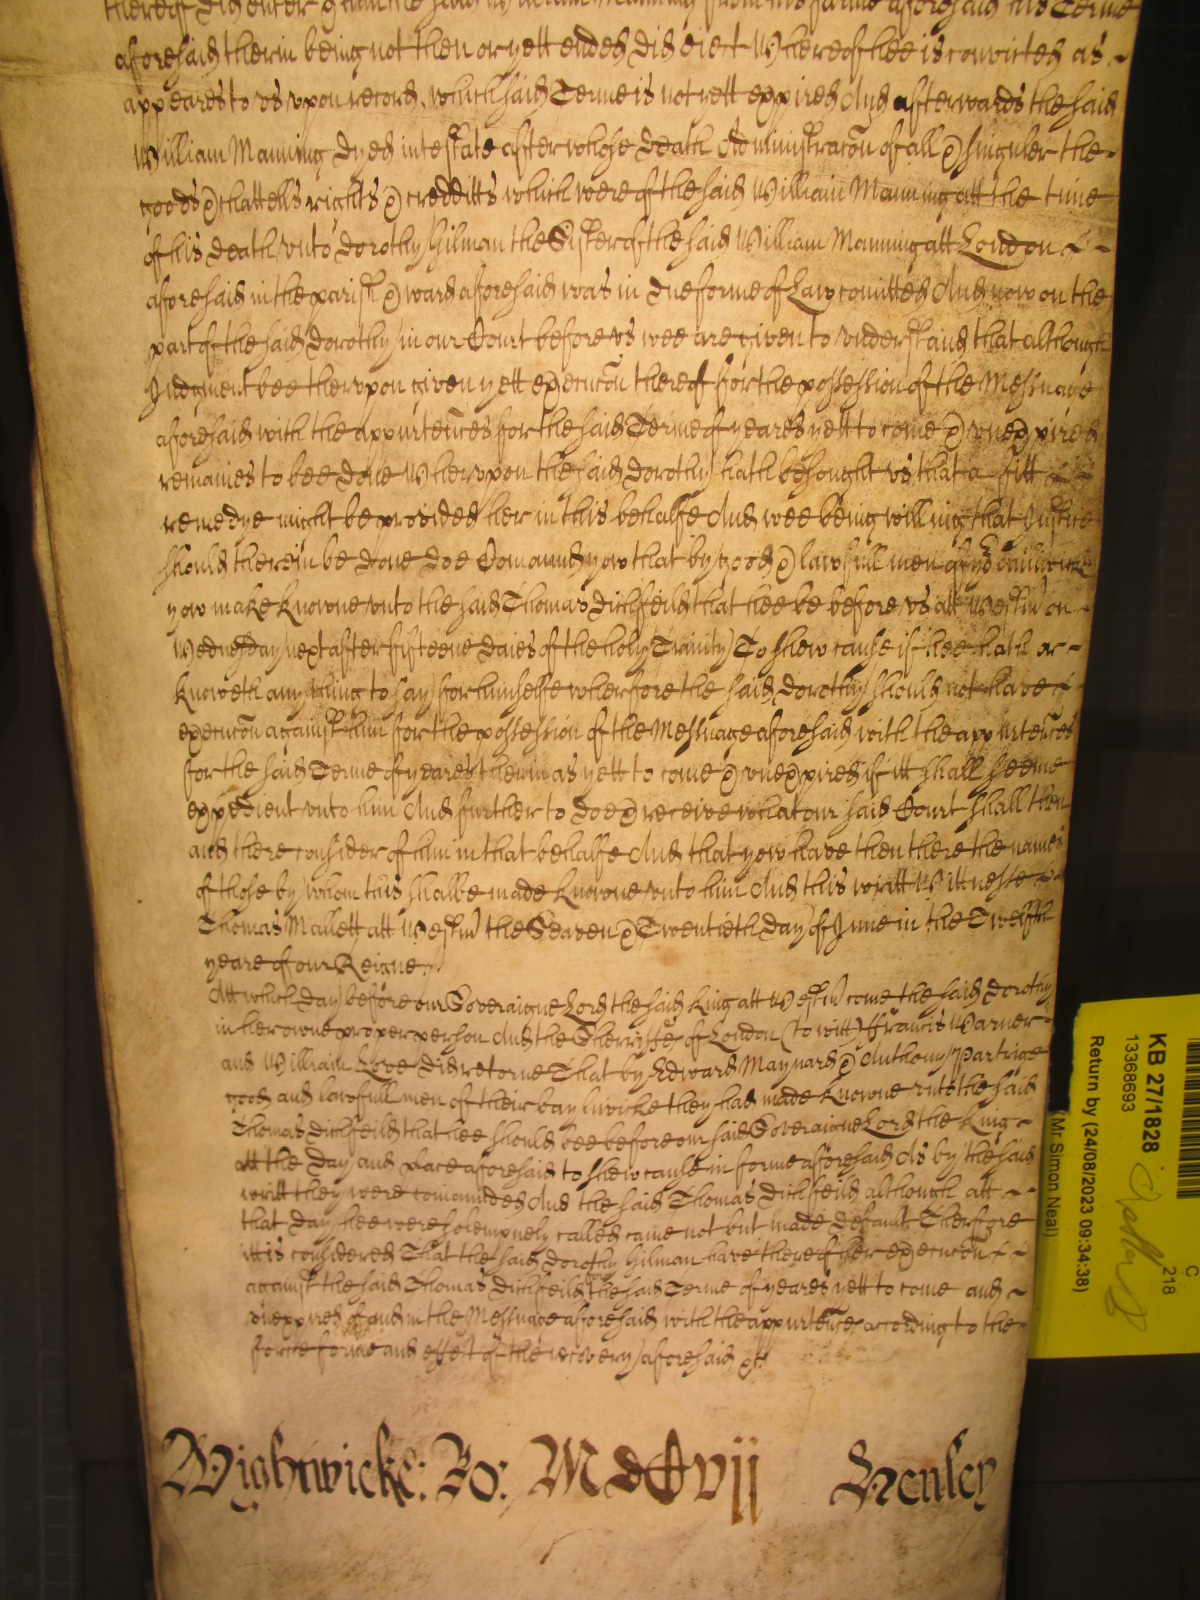 thereof did enter & him the said William Manning from his farme aforesaid his Terme
aforesaid therin being not then or yett ended did eiect Whereof hee is convicted as
appeares to vs vpon record, which said Terme is not yett expired And afterwards the said
William Manning dyed intestate after whose death Administracōn of all & singuler the
goods & chattells rights & creditts which were of the said William Manning att the time
of his death vnto Dorothy Hilman the Sister of the said William Manning att London
aforesaid in the parish & ward aforesaid was in due forme of Law comitted And now on the
part of the said Dorothy in our Court before vs wee are given to vnderstand that although
Judgment bee thervpon given yett execucōn thereof for the possession of the Messuage
aforesaid with the appurtēnces for the said Terme of yeares yett to come & vnexpired
remaines to bee done Whervpon the said Dorothy hath besought vs that a fitt
remedye might be provided her in this behalfe And wee being willing that Justice
should therein be done doe Comaund yow that by good & lawfull men of yor bailiwicke
yow make knowne vnto the said Thomas Ditchfeild that hee be before vs att Westm̄ on
Wednesday next after fifteene daies of the holy Trinity To shew cause if hee hath or
knoweth any thing to say for himselfe wherfore the said Dorothy should not have
execucōn against him for the possession of the Messuage aforesaid with the appurtēnces
for the said Terme of yeares therin as yett to come & vnexpired if itt shall seeme
expedient vnto him And further to doe & receive what our said Court shall then
and there consider of him in that behalfe And that yow have then there the names
of those by whom this shalbe made knowne vnto him And this writt Wittnesse
Thomas Mallett att Westm̄ the Seaven & Twentieth day of June in the Twelfth
yeare of our Reigne
Att which day before our Soveraigne Lord the said King att Westm̄ come the said Dorothy
in her owne proper person And the Sherriffes of London (to witt) Francis Warner
and William Love did retorne That by Edward Maynard & Anthony Partrige
good and lawfull men of their bayliwicke they had made knowne vnto the said
Thomas Ditchfeild that hee should bee before our said Soveraigne Lord the King
att the day and place aforesaid to shew cause in forme aforesaid As by the said
writt they were comaunded And the said Thomas Ditchfeild although att
that day hee were solempnely called came not but made default Therfore
itt is considered That the said Dorothy Hilman have thereof her execucōn
against the said Thomas Ditchfeild for the said Terme of yeares yett to come and
vnexpired of and in the Messuage aforesaid with the appurtēnces according to the
force forme and effect of the recovery aforesaid &c.
Wightwicke: Ro: MdCvii Henley
KB 27/1828
13368693
Return by (24/08/2023 09:34:38)
(Mr Simon Neal)
C
218